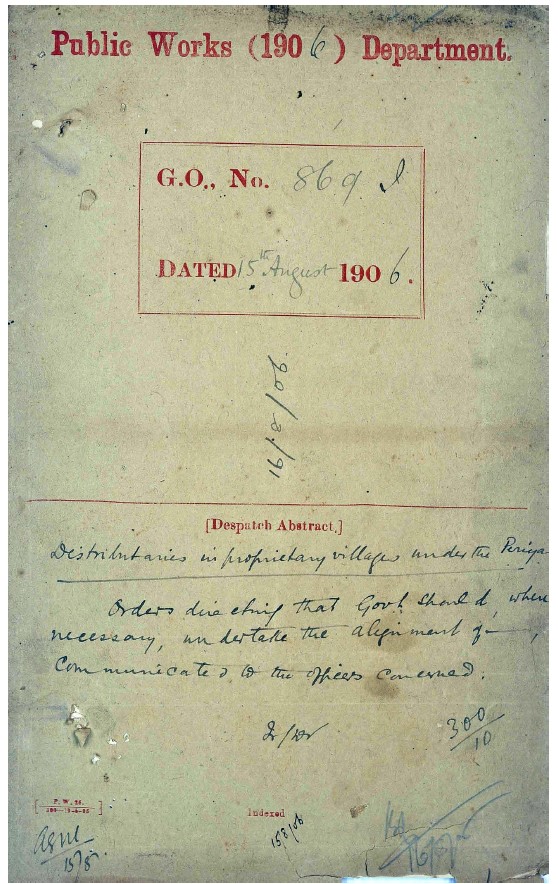 Public Works (1906) Department.
G.O., No. 869 I
DATED 15th August 1906.
16/8/06
[Despatch Abstract.]
Distributaries in proprietary villages under the Periya
Orders directing that Govt. should, where
necessary, undertake the alignment of — ,
Communicated to the officers concerned.
300/10
[P. W. 26.
Indexed
15/8/06
15/8